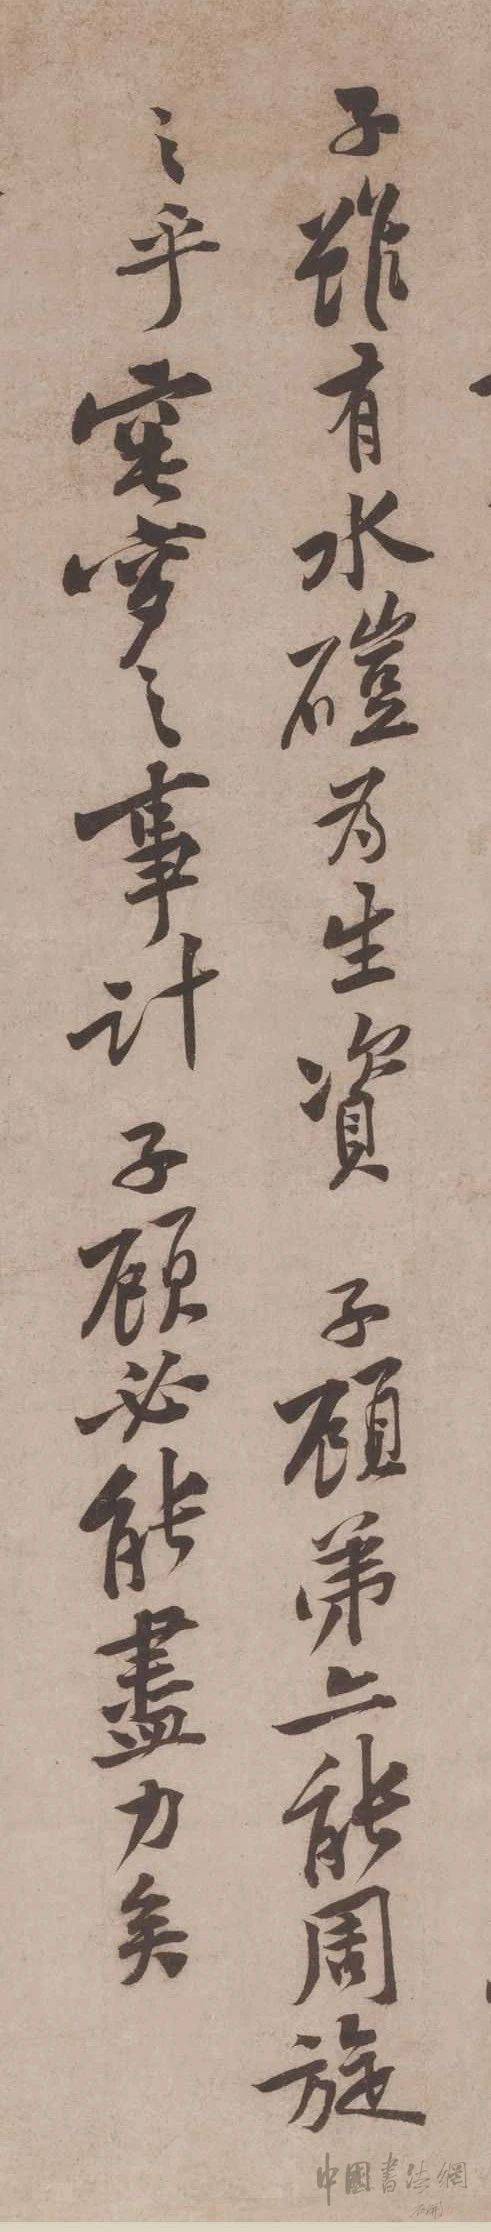 子雖有水磑為生資 子顧弟亦能周旋
之乎窀穸之事計 子顧必能盡力矣
中國書法網